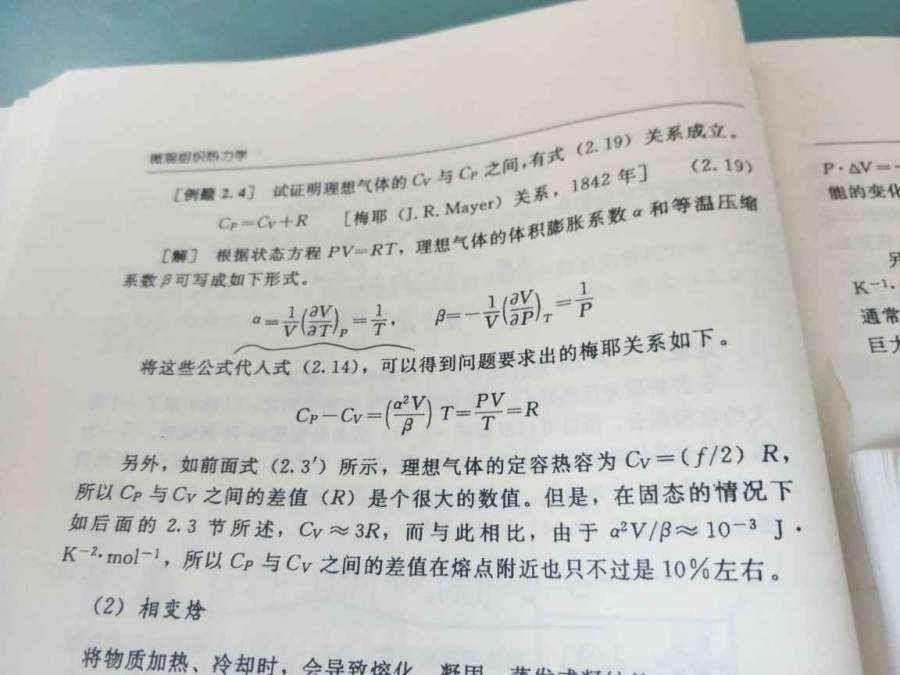 微观组织热力学
[例题 2.4] 试证明理想气体的 Cv 与 CP 之间,有式（2.19）关系成立。
CP=CV+R [梅耶（J.R.Mayer）关系，1842 年] （2.19）
[解] 根据状态方程 PV=RT，理想气体的体积膨胀系数 α 和等温压缩
系数 β 可写成如下形式。
α=1/V(∂V/∂T)P=1/T, β=-1/V(∂V/∂P)T=1/P
将这些公式代人式（2.14），可以得到问题要求出的梅耶关系如下。
CP-CV=(α²V/β)T=PV/T=R
另外，如前面式（2.3′）所示，理想气体的定容热容为 CV=(f/2) R，
所以 CP 与 CV 之间的差值（R）是个很大的数值。但是，在固态的情况下
如后面的 2.3 节所述，CV≈3R，而与此相比，由于 α²V/β≈10⁻³ J·
K⁻²·mol⁻¹，所以 CP 与 CV 之间的差值在熔点附近也只不过是 10%左右。
（2）相变焓
将物质加热、冷却时，会导致熔化、凝固、蒸发或
P·ΔV=-
能的变化
K⁻¹·
通常
巨大